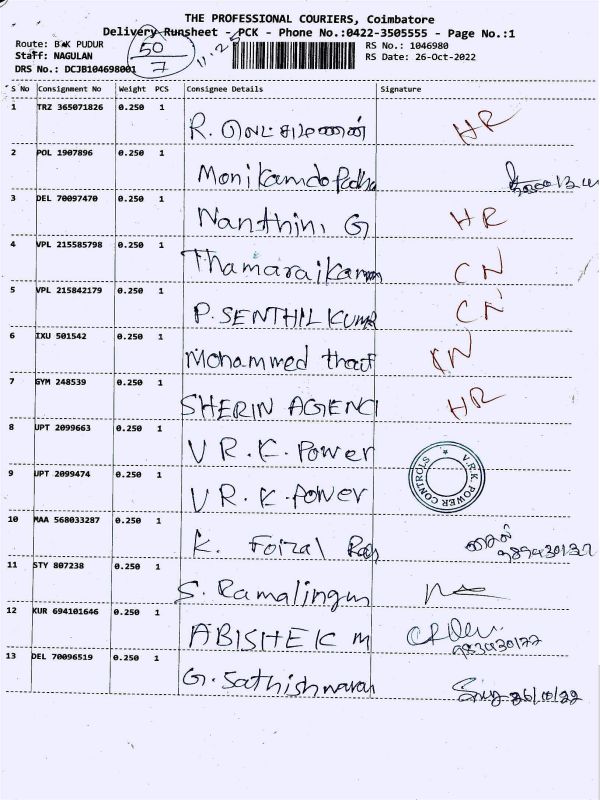 THE PROFESSIONAL COURIERS, Coimbatore
Delivery Runsheet - PCK - Phone No.:0422-3505555 - Page No.:1
Route: BK PUDUR
Staff: NAGULAN
DRS No.: DCJB104698001
50
7
11.25
RS No.: 1046980
RS Date: 26-Oct-2022
S No Consignment No Weight PCS Consignee Details Signature
1 TRZ 365071826 0.250 1 R. லெட்சுமணன் HR
2 POL 1907896 0.250 1
3 DEL 70097470 0.250 1 Nanthini G HR
4 VPL 215585798 0.250 1 Thamaraikannan CN
5 VPL 215842179 0.250 1 P. SENTHIL KUMAR CN
6 IXU 501542 0.250 1 Mohammed CN
7 GYM 248539 0.250 1 SHERIN AGENCI HR
8 UPT 2099663 0.250 1 V R. K. Power
9 UPT 2099474 0.250 1 V R. K. Power
V.R.K. POWER CONTROLS
10 MAA 568033287 0.250 1 K. Foizal
11 STY 807238 0.250 1 S. Ramalingm
12 KUR 694101646 0.250 1 ABISHEK M
13 DEL 70096519 0.250 1 G. Sathishnaran 26/10/22